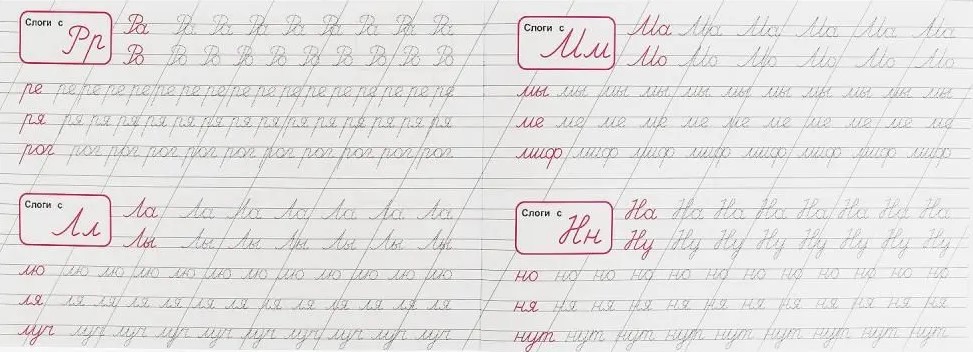 Слоги с Рр
Ра Ра Ра Ра Ра Ра Ра Ра Ра
Ро Ро Ро Ро Ро Ро Ро Ро Ро
ре ре ре ре ре ре ре ре ре ре ре ре ре ре ре ре ре
ря ря ря ря ря ря ря ря ря ря ря ря ря ря ря
рог рог рог рог рог рог рог рог рог рог рог
Слоги с Лл
Ла Ла Ла Ла Ла Ла Ла Ла
Лы Лы Лы Лы Лы Лы Лы Лы
лю лю лю лю лю лю лю лю лю лю лю лю
ля ля ля ля ля ля ля ля ля ля ля ля ля
луч луч луч луч луч луч луч луч луч луч
Слоги с Мм
Ма Ма Ма Ма Ма Ма Ма
Мо Мо Мо Мо Мо Мо Мо
мы мы мы мы мы мы мы мы мы мы мы
ме ме ме ме ме ме ме ме ме ме ме
миф миф миф миф миф миф миф миф
Слоги с Нн
На На На На На На На На На
Ну Ну Ну Ну Ну Ну Ну Ну Ну
но но но но но но но но но но но но
ня ня ня ня ня ня ня ня ня ня ня ня
нут нут нут нут нут нут нут нут нут